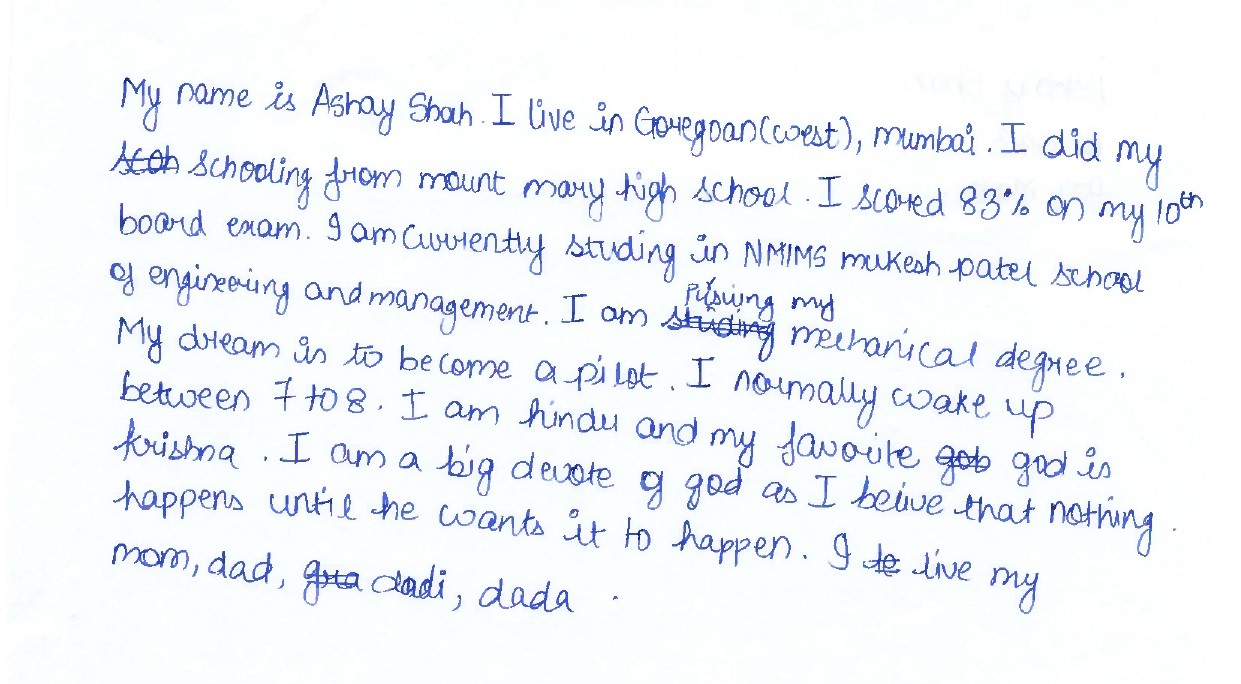 My name is Ashay Shah. I live in Goregoan(west), mumbai. I did my
scoh schooling from mount mary high school. I scored 83% on my 10th
board exam. I am currently studing in NMIMS mukesh patel school
of engineering and management. I am studing pusuing my mechanical degree.
My dream is to become a pilot. I normally wake up
between 7 to 8. I am hindu and my favorite gob god is
krishna. I am a big devote of god as I belive that nothing.
happens until he wants it to happen. I le live my
mom, dad, gra dadi, dada.